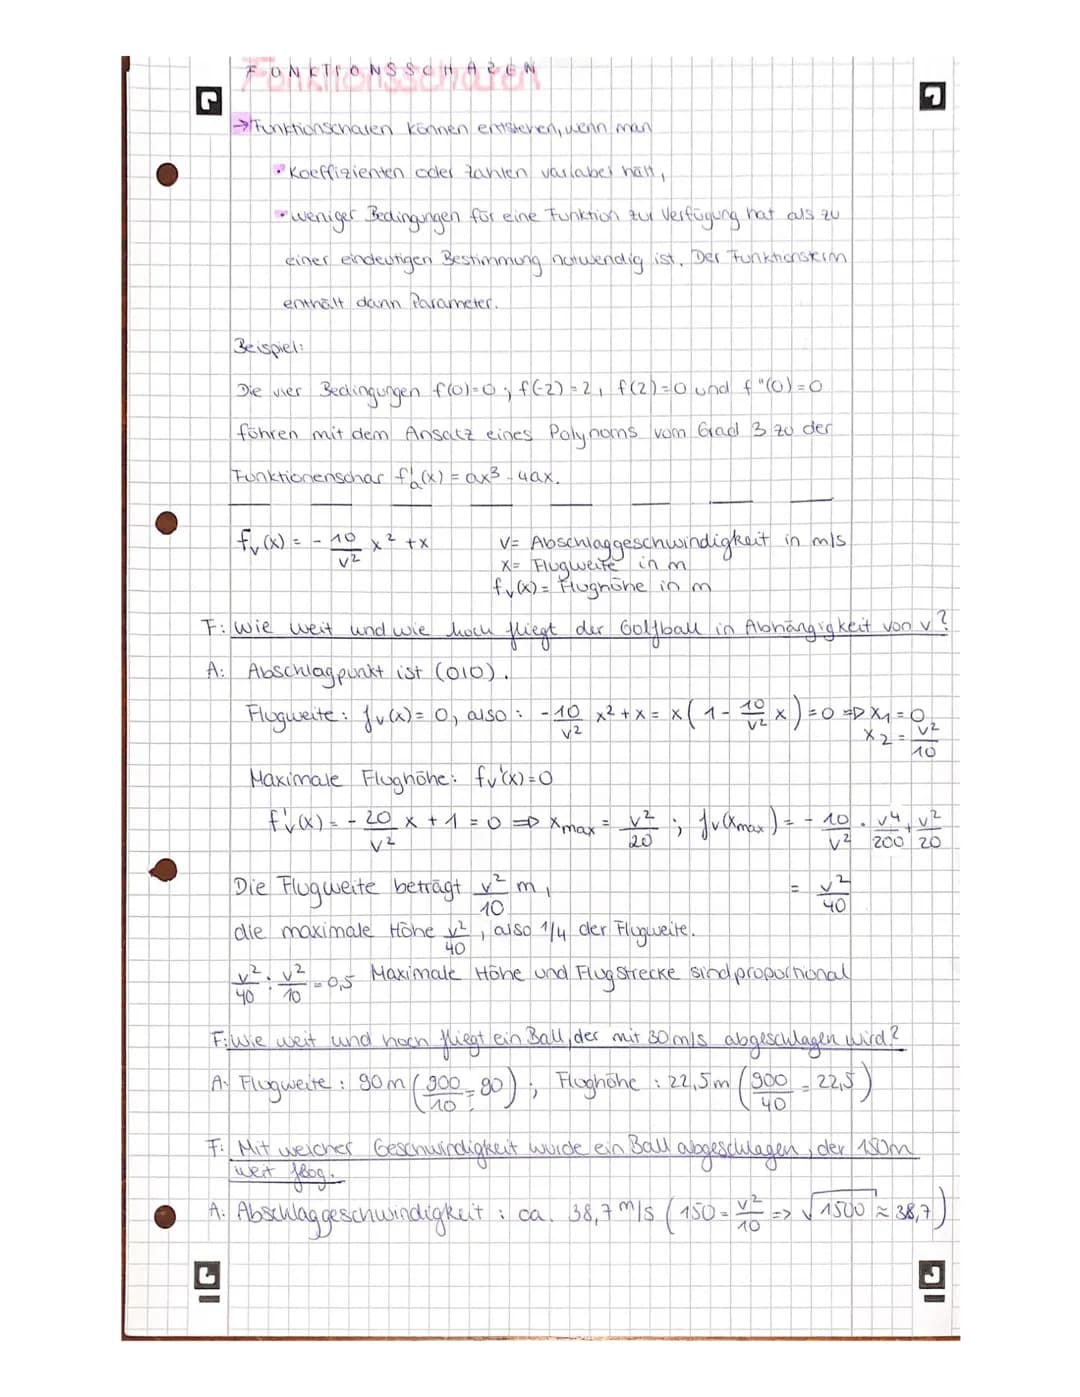 FUNKTIONSSCHAREN
→ Funktionscharen können entstehen, wenn man
• Koeffizienten oder Zahlen variabel hält,
• weniger Bedingungen für eine Funktion zur Verfügung hat als zu
einer eindeutigen Bestimmung notwendig ist. Der Funktionsterm
enthält dann Parameter.
Beispiel:
Die vier Bedingungen f(0)=0; f(-2)=2, f(2)=0 und f"(0)=0
führen mit dem Ansatz eines Polynoms vom Grad 3 zu der
Funktionenschar f'a(x) = ax³ - 4ax.
fv(x) = - 10/v² x² + x
v= Abschlaggeschwindigkeit in m/s
x= Flugweite in m
fv(x)= Flughöhe in m
F: Wie weit und wie hoch fliegt der Golfball in Abhängigkeit von v?
A: Abschlagpunkt ist (0|0).
Flugweite: fv(x)= 0, also: - 10/v² x² + x = x(1 - 10/v² x) = 0 => x₁ = 0
x₂ = v²/10
Maximale Flughöhe: fv'(x)=0
f'v(x) = - 20/v² x + 1 = 0 => xmax = v²/20 ; fv(xmax) = - 10/v² · v⁴/200 + v²/20
= v²/40
Die Flugweite beträgt v²/10 m,
die maximale Höhe v²/40, also 1/4 der Flugweite.
v²/40 : v²/10 = 0,5 Maximale Höhe und Flugstrecke sind proportional
F: Wie weit und hoch fliegt ein Ball, der mit 30 m/s abgeschlagen wird?
A: Flugweite: 90m (900/10 = 90); Flughöhe: 22,5m (900/40 = 22,5)
F: Mit welcher Geschwindigkeit wurde ein Ball abgeschlagen, der 150m
weit flog.
A: Abschlaggeschwindigkeit: ca. 38,7 m/s (150 = v²/10 => √1500 ≈ 38,7)